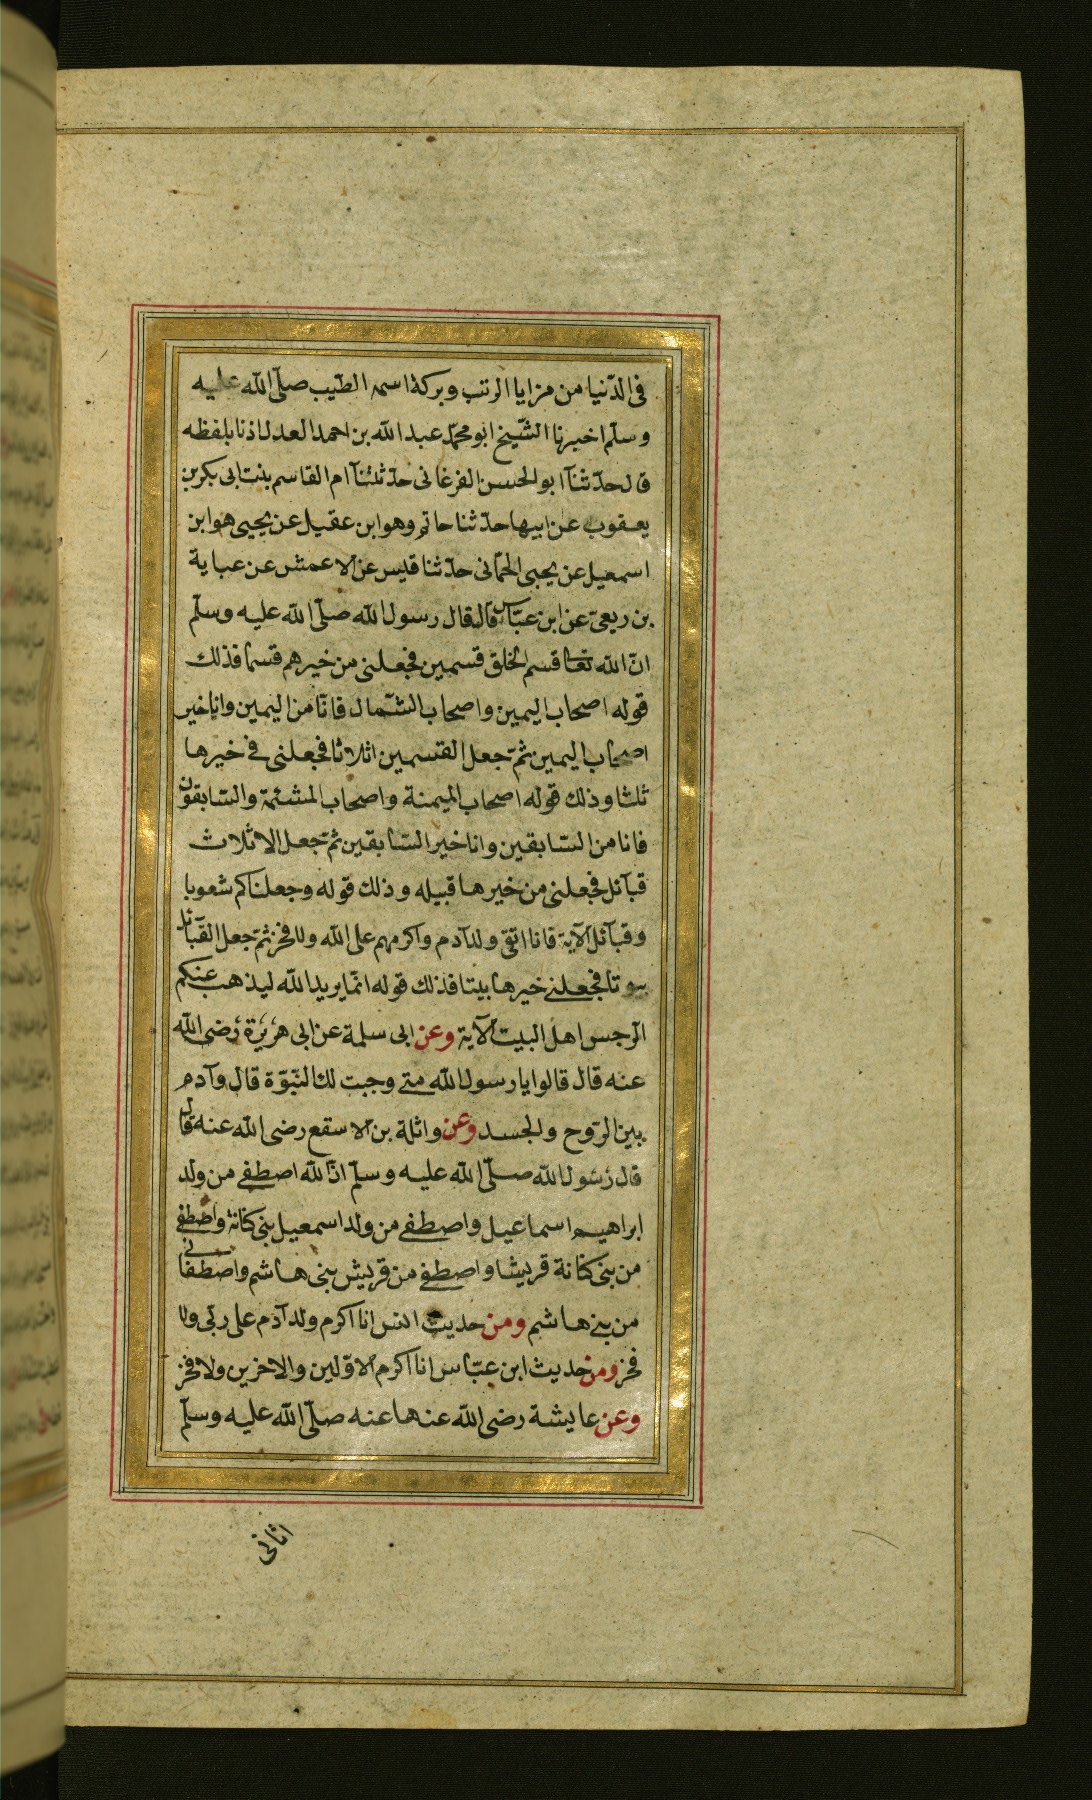 فى الدّنيا من مزايا الرتب وبركة اسمه الطّيب صلّى الله عليه
وسلّم اخبرنا الشّيخ ابو محمّد عبد الله بن احمد العدل اذنا بلفظه
قال حدّثنا ابو الحسن الفرغانى حدّثتنا ام القاسم بنت ابى بكر بن
يعقوب عن ابيها حدّثنا حاتم وهو ابن عقيل عن يحيى هو ابن
اسمعيل عن يحيى الحمّانى حدّثنا قيس عن الاعمش عن عباية
بن ربعىّ عن ابن عبّاس قال قال رسول الله صلّى الله عليه وسلّم
انّ الله تعا قسم الخلق قسمين فجعلنى من خيرهم قسما فذلك
قوله اصحاب اليمين واصحاب الشّمال فانا من اليمين وانا خير
اصحاب اليمين ثمّ جعل القسمين اثلاثا فجعلنى فى خيرها
ثلثا وذلك قوله اصحاب الميمنة واصحاب المشئمة والسّابقون
فانا من السّابقين وانا خير السّابقين ثمّ جعل الاثلاث
قبآئل فجعلنى من خيرها قبيله وذلك قوله وجعلناكم شعوبا
وقبآئل الآية فانا اتقى ولد آدم واكرمهم على الله ولا فخر ثمّ جعل القبآئل
بيوتا فجعلنى خيرها بيتا فذلك قوله انّما يريد الله ليذهب عنكم
الرّجس اهل البيت الآية وعن ابى سلمة عن ابى هريرة رضى الله
عنه قال قالوا يا رسول الله متى وجبت لك النّبوّة قال وآدم
بين الرّوح والجسد وعن واثلة بن الاسقع رضى الله عنه قال
قال رسول الله صلّى الله عليه وسلّم انّ الله اصطفى من ولد
ابراهيم اسماعيل واصطفى من ولد اسمعيل بنى كنانة واصطفى
من بنى كنانة قريشا واصطفى من قريش بنى هاشم واصطفانى
من بنى هاشم ومن حديث انس انا اكرم ولد آدم على ربّى ولا
فخر ومن حديث ابن عبّاس انا اكرم الاوّلين والاخرين ولا فخر
وعن عايشة رضى الله عنها عنه صلّى الله عليه وسلّم
اتانى